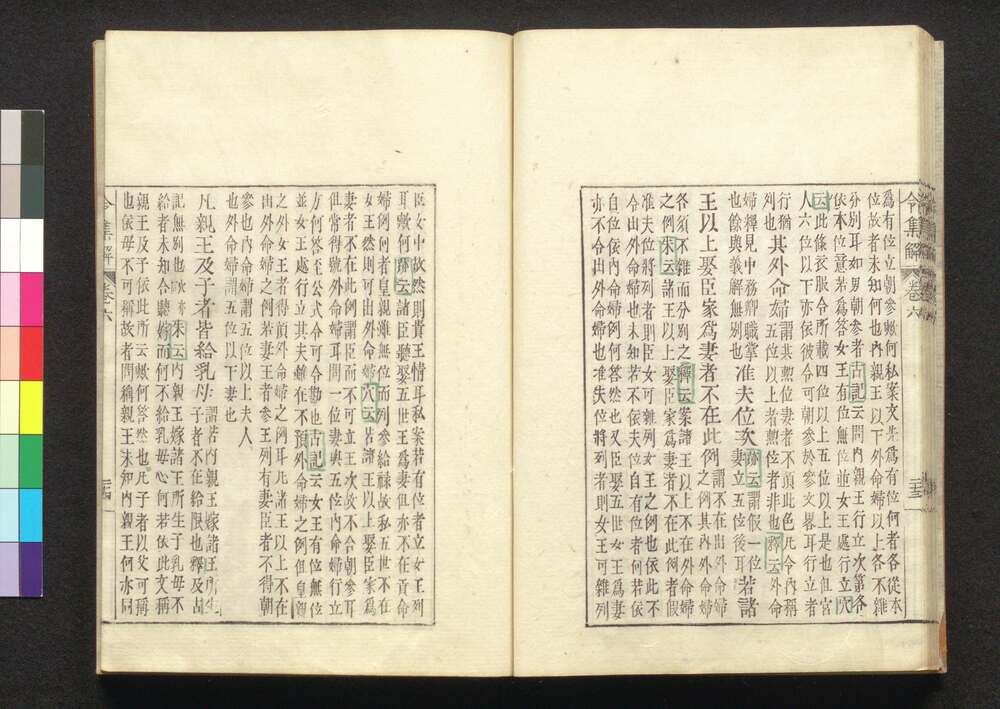 令集解 卷六
爲有位立朝參歟何私案文先爲有位何者各從本
位故者未知何也內親王以下外命婦以上各不雜
分別耳如男朝參者古記云問內親王行立次第各
依本位意若爲答女王有位無位並女王處行立穴
云此條衣服令所載四位以上五位以上是也但宮
人六位以下亦依彼令可朝參於參文畧耳行立者
行猶
列也
其外命婦
謂其
位妻者不須此色凡令內稱
五位以上者
位者非也釋云外命
婦釋見中務卿職掌
也餘與義解無別也
准夫位次
謂假一位
妻立五位後耳
若諸
王以上娶臣家爲妻者不在此例
謂不在出外命婦
之例其內外命婦
各須不雜而分別之釋云案諸王以上不在外命婦
之例朱云諸王以上娶臣家爲妻者不在此例者假
准夫位將列者則臣女可雜列女王之例也依此不
令出外命婦也未知若不依夫位自有位者何若依
自位內命婦例何答然也又臣娶五世女王爲妻
亦不合出外命婦例何也准夫位將列者則女王可雜列
臣女中歟然則貴王情耳私案若有位者立女王列
耳歟何跡云諸臣聽娶五世王爲妻但亦不在貢命
婦例何者皇親雖無位而列參給祿故私五世不在
女王然則可出外命婦穴云若諸王以上娶臣家爲
妻者不在此例謂臣而不可立王次故不合朝參耳
但常得號外命婦耳問一位妻與五位內命婦行立
方何答至公式令可令勘也古記云女王有位無位
並女王處行立其夫雖在不預外命婦之例但皇親
之外女王者得預外命婦之例耳凡諸王以上不在
出外命婦之例若妻王者參王列有妻臣者不得朝
參也內命婦謂五位以上夫人
也外命婦謂五位以下妻也
凡親王及子者皆給乳母
謂若內親王嫁諸王所生
子者不在給限也釋及古
記無別也
朱云內親王嫁諸王所生子乳母不
給者未知合聽嫁而何不給乳母心何若依此文稱
親王及子依此所云歟何答然也凡子者以父可稱
也依母不可稱故者問稱親王未知內親王何亦同